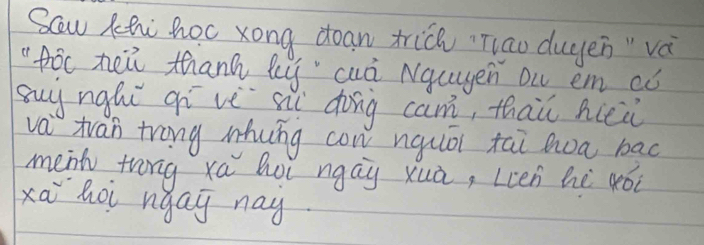 Sau khi học xong đoạn trích "Trao duyên" và
"Độc tiểu thanh ký" của Nguyễn Du em có
suy nghĩ gì về sự đồng cảm, thấu hiểu
và trân trọng những con người tài hoa bạc
mệnh trong xã hội ngày xưa, liên hệ với
xã hội ngày nay.